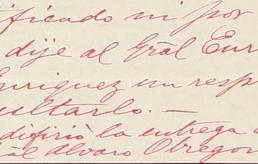 ificado ni por
dije al Gral Enr
Enriquez un resp
ultarlo. —
difirió la entrega a
al Alvaro Obregon